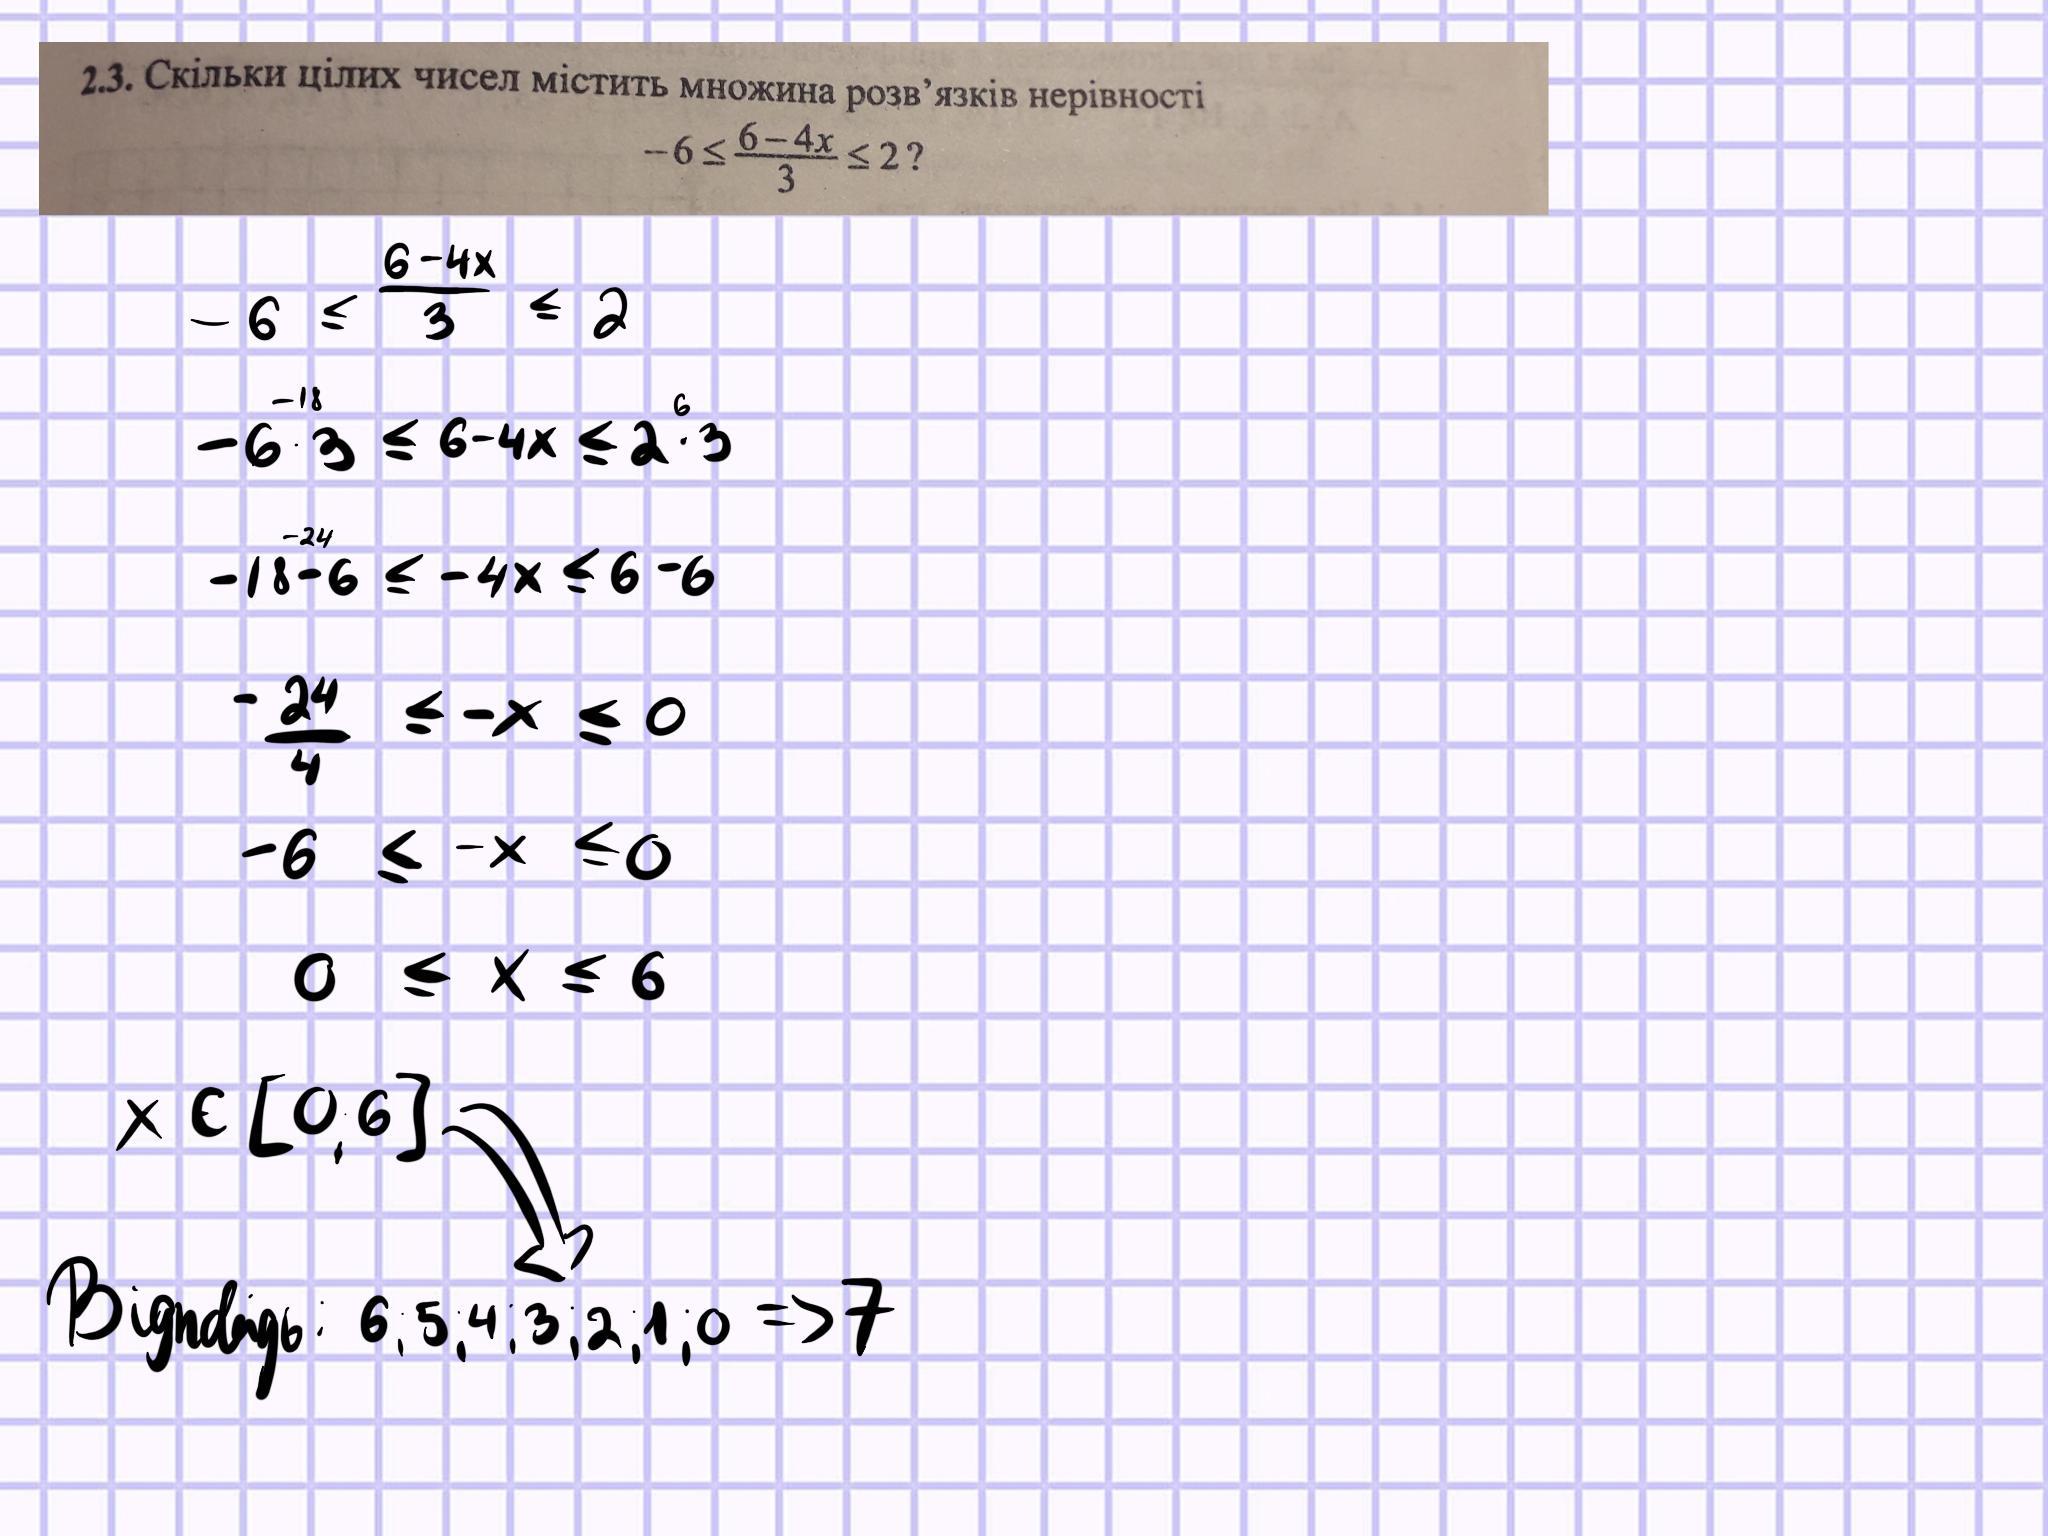 2.3. Скільки цілих чисел містить множина розв’язків нерівності
−6 ≤ (6−4x)/3 ≤ 2?
−6 ≤ (6−4x)/3 ≤ 2
−18 6
−6·3 ≤ 6−4x ≤ 2·3
−24
−18−6 ≤ −4x ≤ 6−6
−24/4 ≤ −x ≤ 0
−6 ≤ −x ≤ 0
0 ≤ x ≤ 6
x ∈ [0;6]
Відповідь: 6;5;4;3;2;1;0 => 7